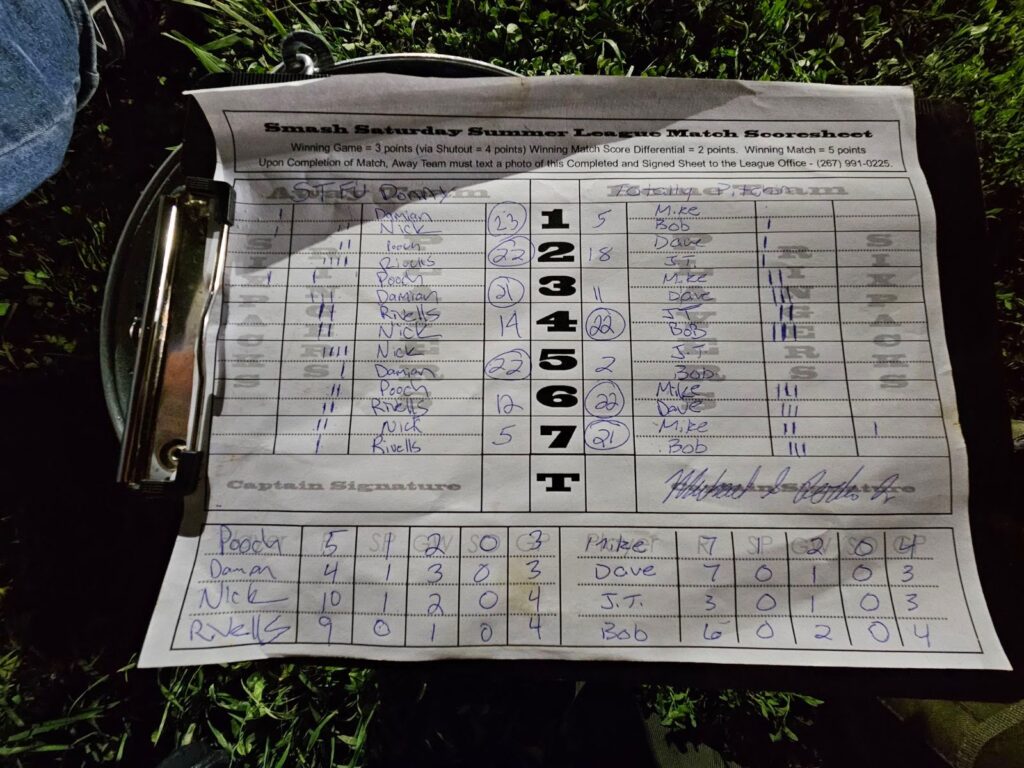 Smash Saturday Summer League Match Scoresheet
Winning Game = 3 points (via Shutout = 4 points) Winning Match Score Differential = 2 points. Winning Match = 5 points
Upon Completion of Match, Away Team must text a photo of this Completed and Signed Sheet to the League Office - (267) 991-0225.
Donny Totally
I Damian 23 1 5 Mike I
Nick Bob
II Pooch 22 2 18 Dave I
IIII Rivells J.T.
I I Pooch 21 3 11 Mike II
III Damian Dave III
II Rivells 14 4 22 J.T. II
II Nick Bob III
IIII Nick 22 5 2 J.T.
I Damian Bob
II Pooch 12 6 22 Mike III
II Rivells Dave III
II Nick 5 7 21 Mike II I
I Rivells Bob III
Captain Signature T Captain Signature
Pooch 5 1 2 0 3 Mike 7 1 2 0 4
Damian 4 1 3 0 3 Dave 7 0 1 0 3
Nick 10 1 2 0 4 J.T. 3 0 1 0 3
Rivells 9 0 1 0 4 Bob 6 0 2 0 4